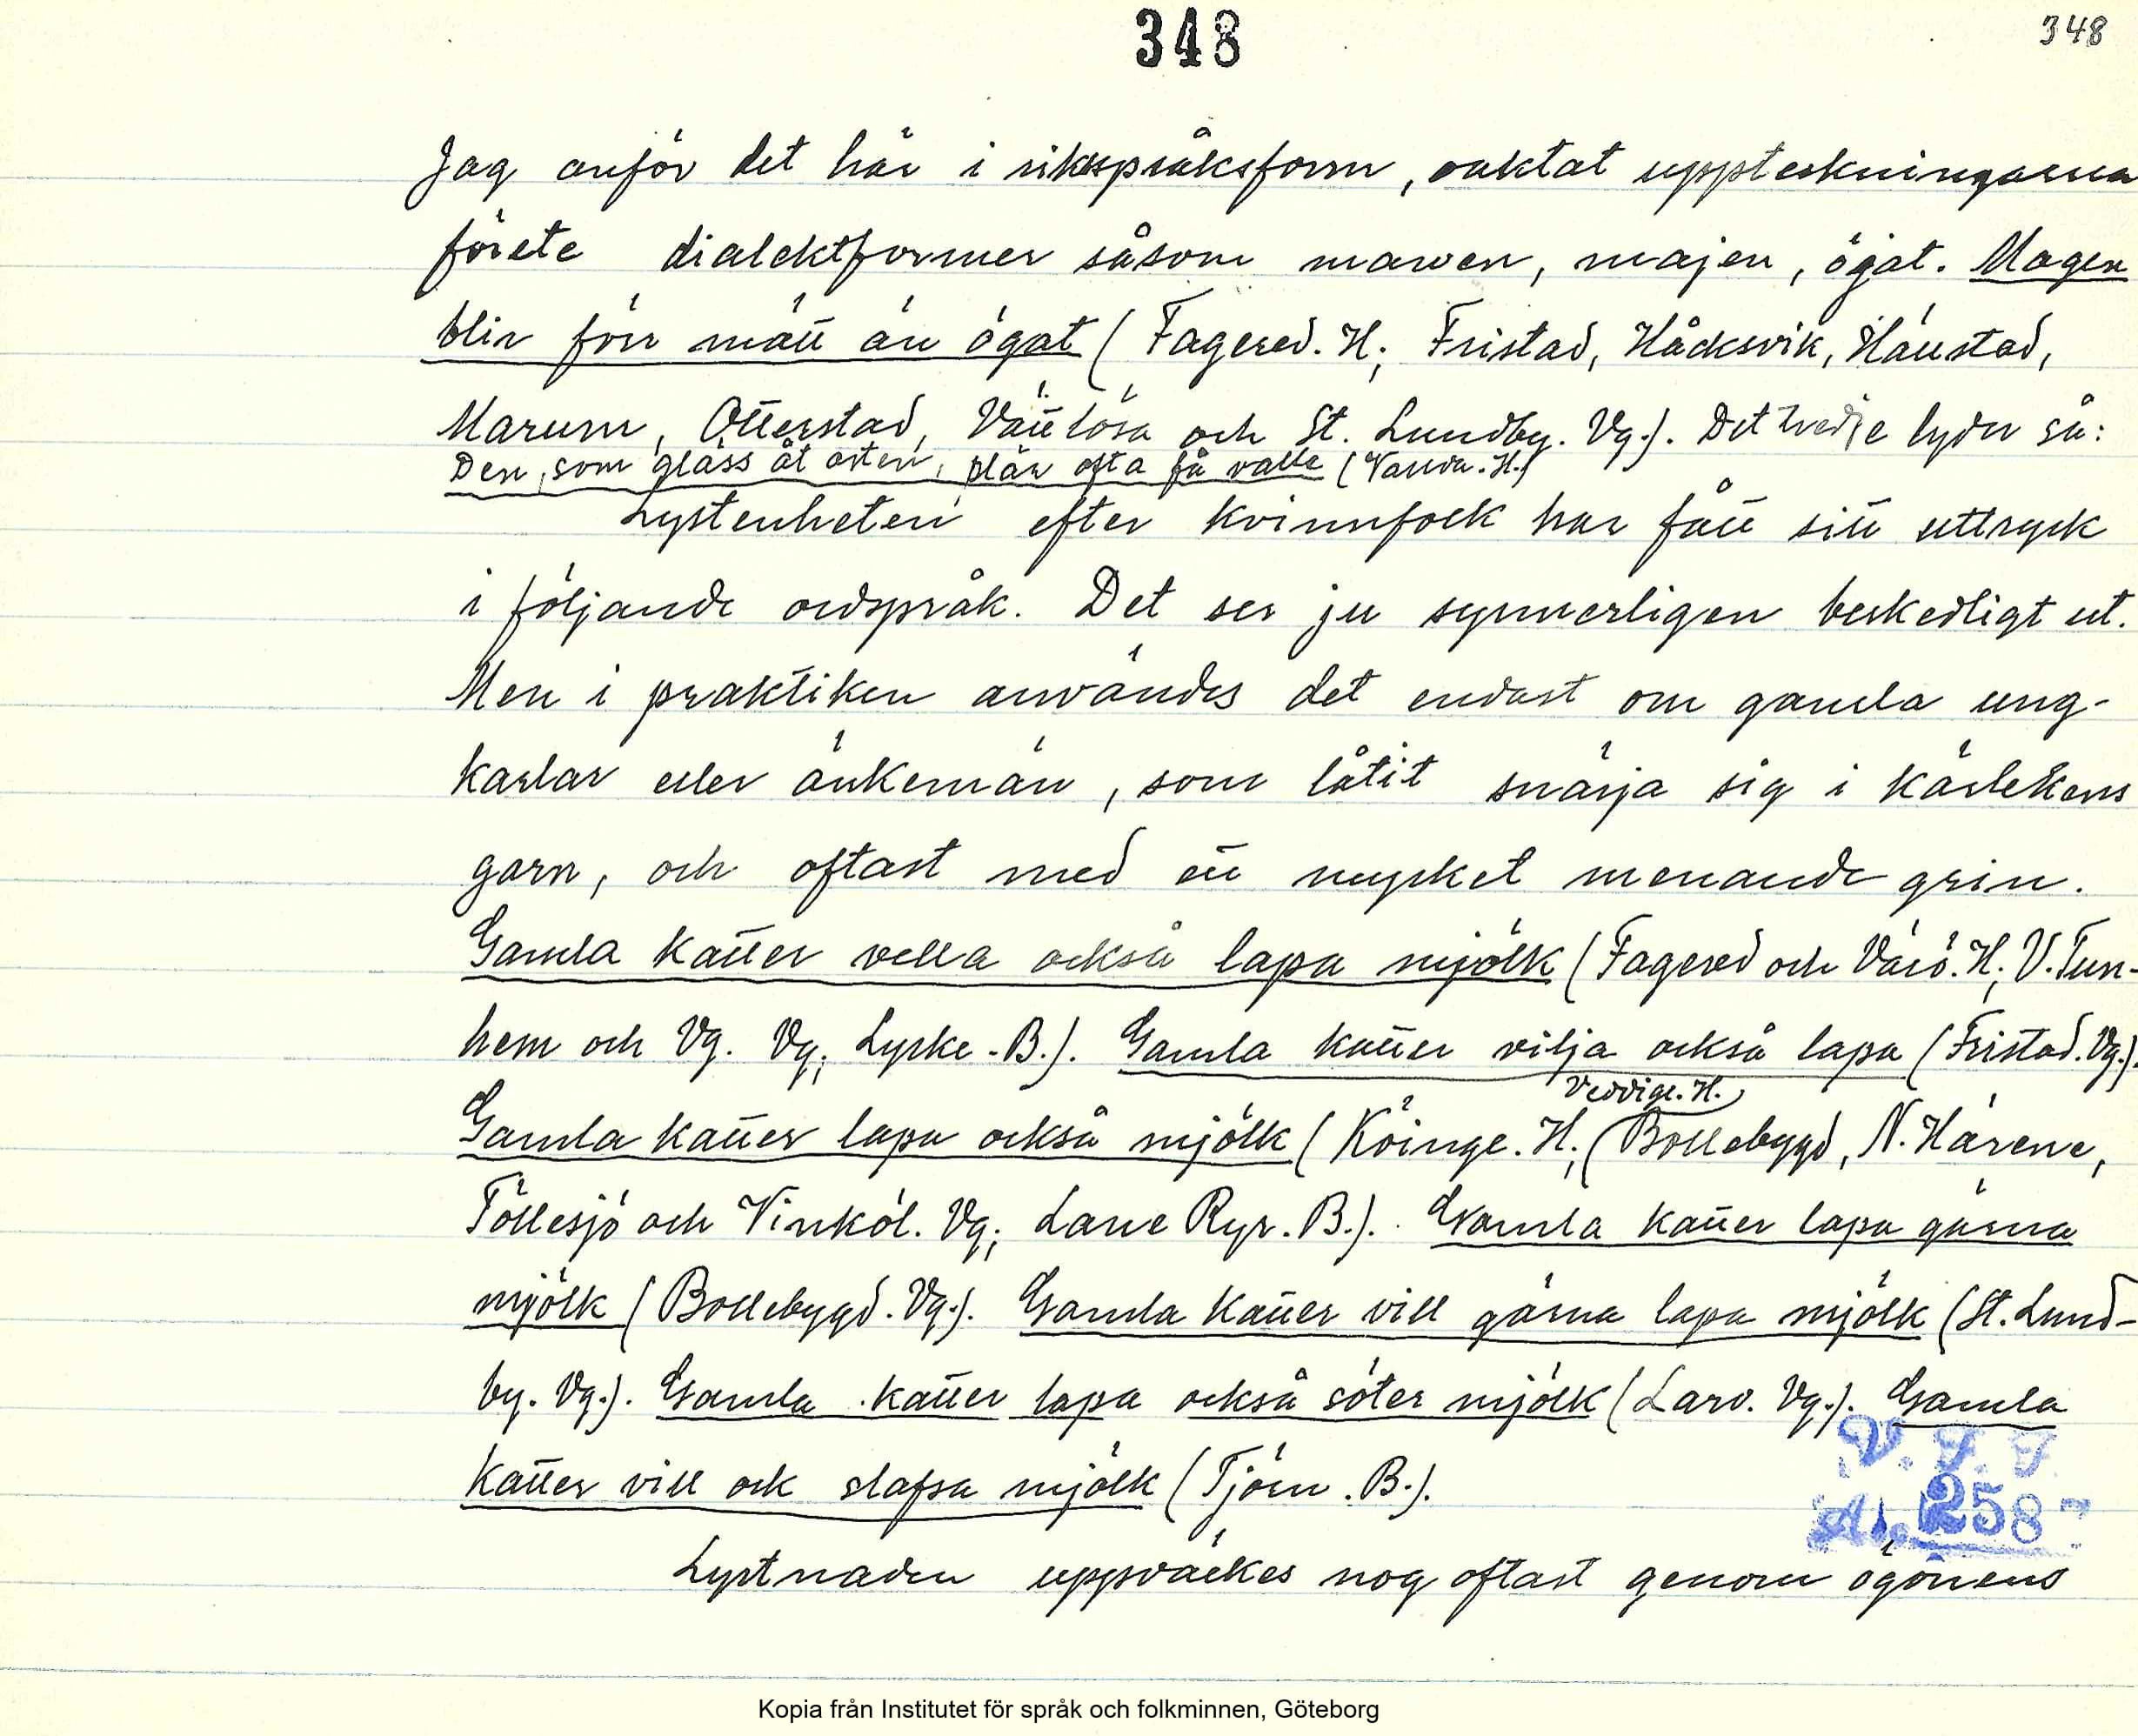 348
348
Jag anför det här i riksspråksform, oaktat uppteckningarna
förete dialektformer såsom mawen, majen, ögat. Magen
blir förr mätt än ögat (Fagered. H; Fristad, Håcksvik, Hällstad,
Marum, Otterstad, Vättlösa och St. Lundby. Vg.). Det tredje lyder så:
Den, som gläss åt osten, plär ofta få valle (Valda. H.)
Lystenheten efter kvinnfolk har fått sitt uttryck
i följande ordspråk. Det ser ju synnerligen beskedligt ut.
Men i praktiken användes det endast om gamla ung-
karlar eller änkemän, som låtit snärja sig i kärlekens
garn, och oftast med ett mycket menande grin.
Gamla katter vella också lapa mjölk (Fagered och Värö. H; V. Tun-
hem och Vg. Vg; Lyske. B.). Gamla katter vilja också lapa (Fristad. Vg.).
Veddige. H.
Gamla katter lapa också mjölk (Köinge. H; Bollebygd, N. Härene,
Töllesjö och Vinköl. Vg; Lane Ryr. B.). Gamla katter lapa gärna
mjölk (Bollebygd. Vg.). Gamla katter vill gärna lapa mjölk (St. Lund-
by. Vg.). Gamla katter lapa också söter mjölk (Larv. Vg.). Gamla
katter vill ock slafsa mjölk (Tjörn. B.).
V. F. F.
258
Lystnaden uppväckes nog oftast genom ögonens
Kopia från Institutet för språk och folkminnen, Göteborg